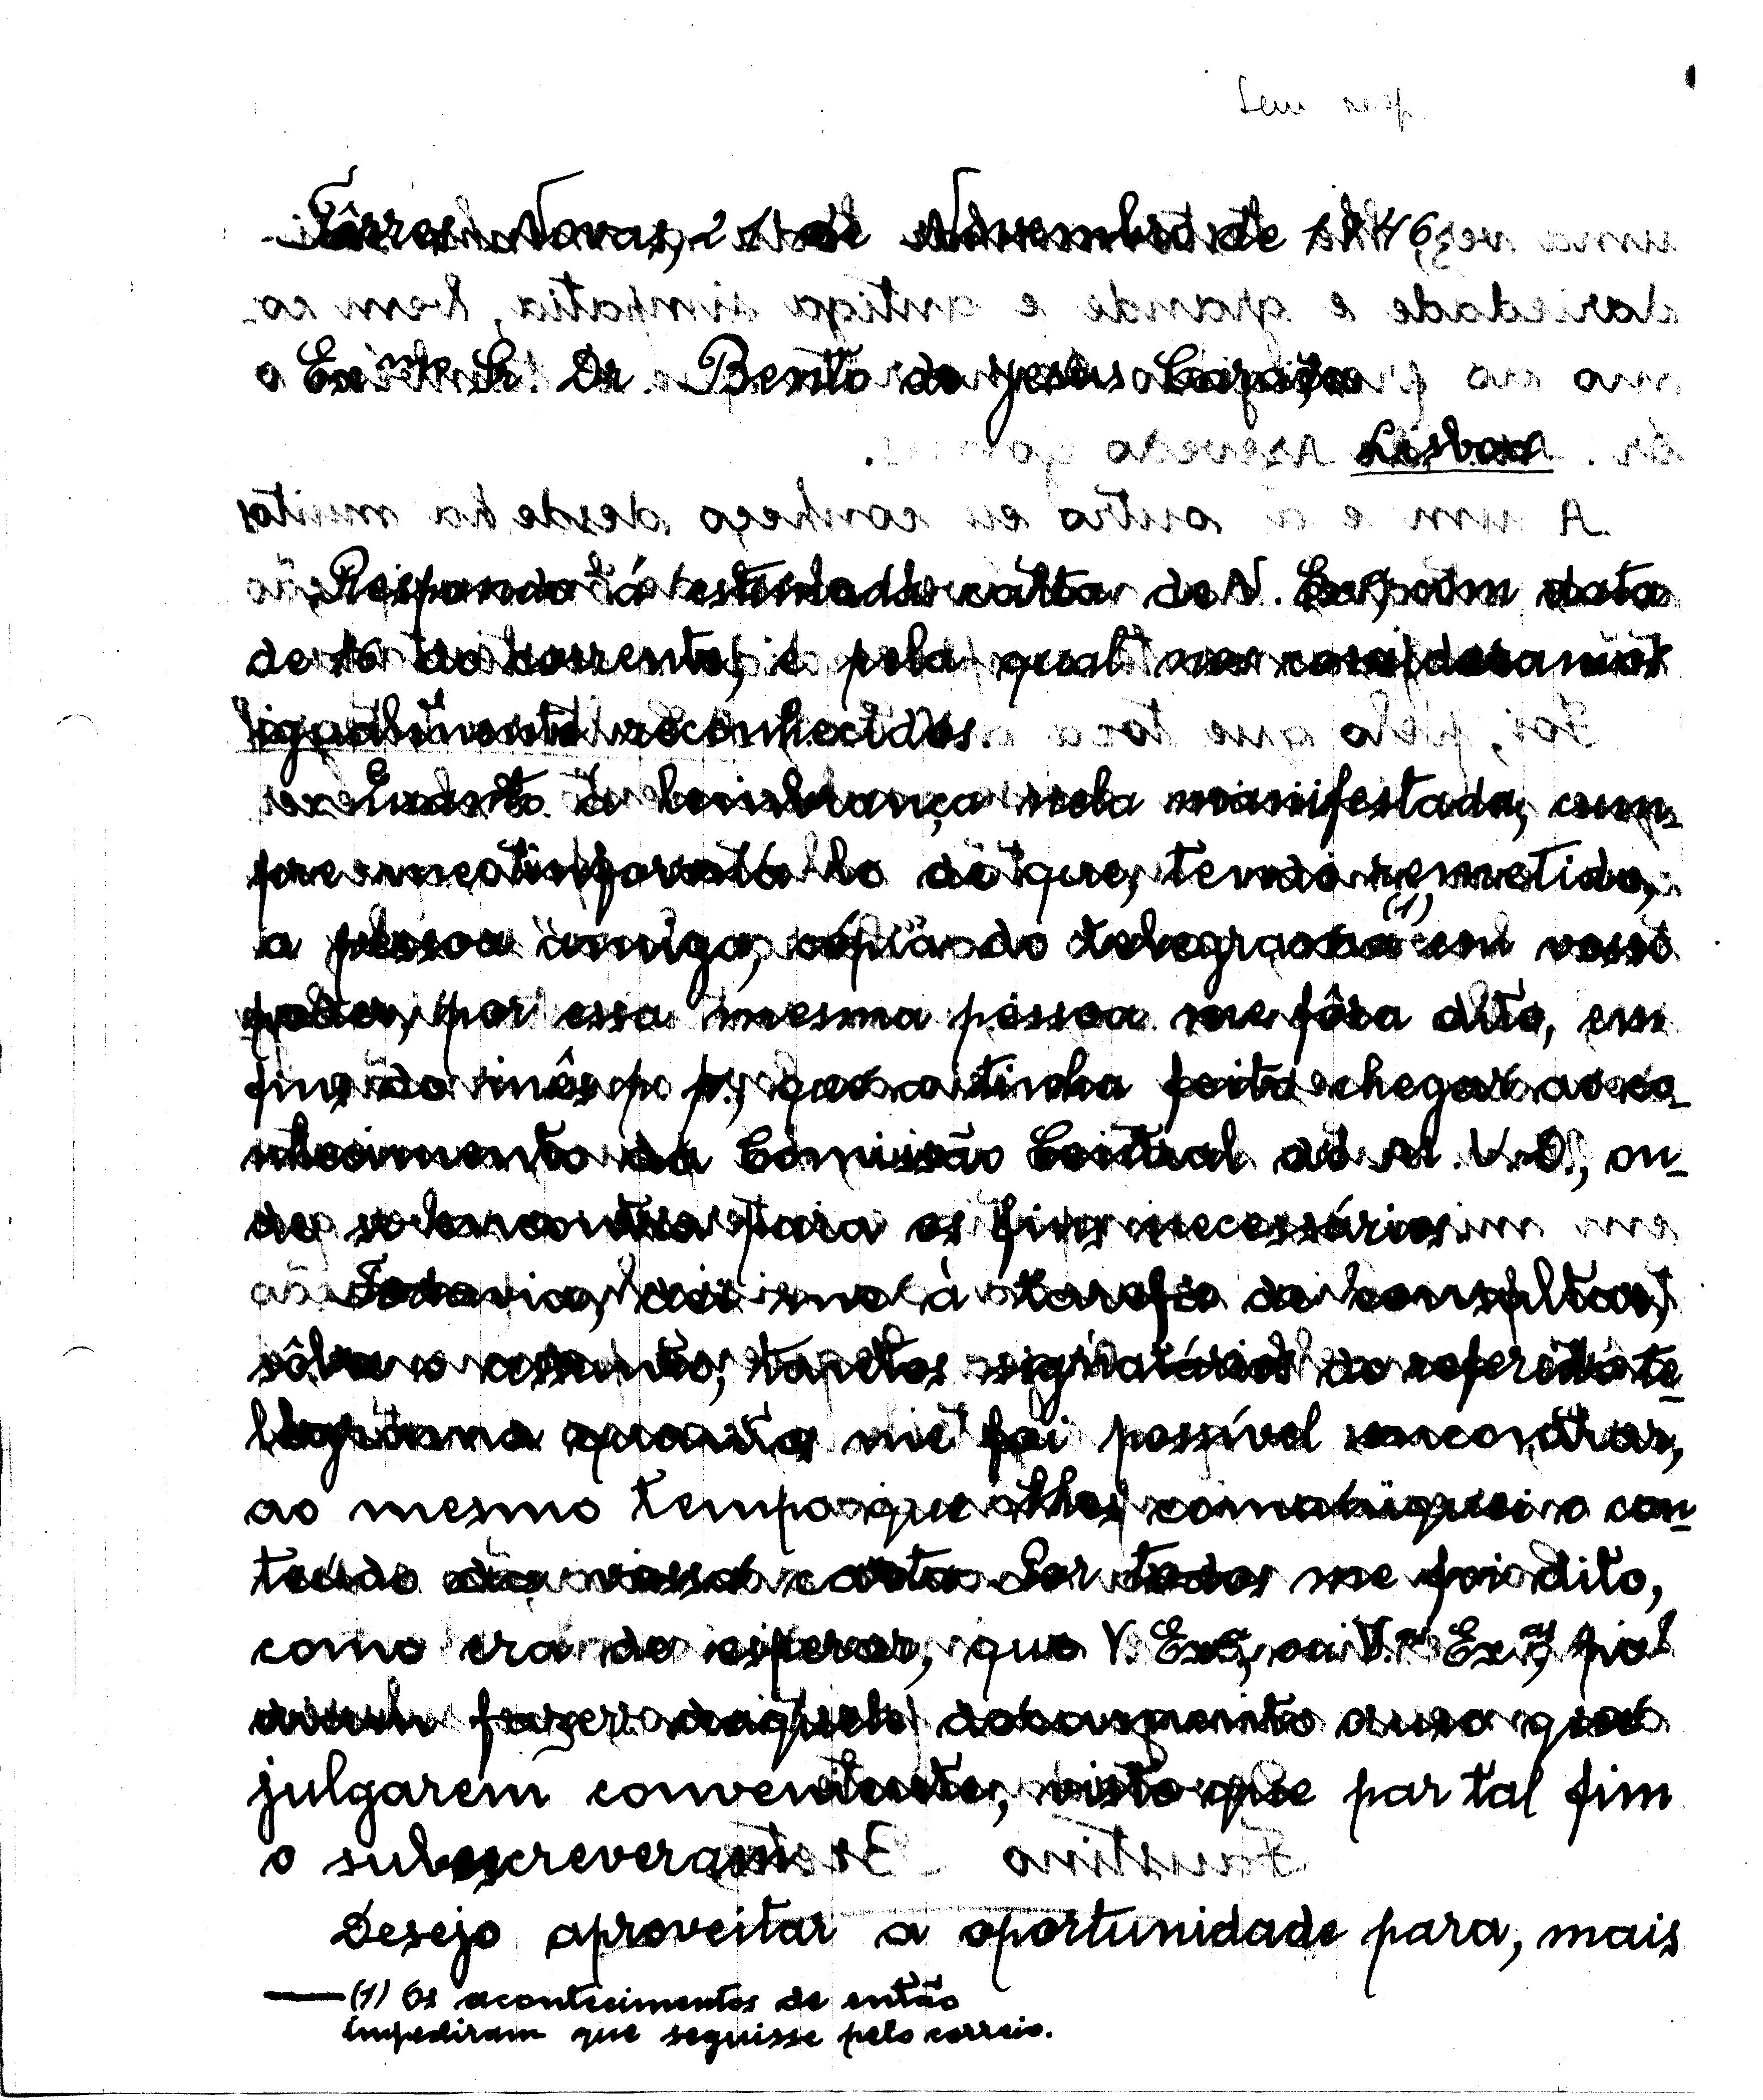 Sem resp.
Tôrres Novas, 21 de Novembro de 1946
Exmo Sr. Dr. Bento de Jesus Caraça
Lisboa
Respondo á estimada carta de V. Exa, com data
de 16 do corrente, e pela qual nos consideramos
igualmente reconhecidos.
Quanto à lembrança nela manifestada, cum-
pre-me informá-lo de que, tendo remetido,
a pessoa amiga, cópia do telegrama (1) em vosso
poder, por essa mesma pessoa me fôra dito, em
fins do mês p. p., que a tinha feito chegar ao co-
nhecimento da Comissão Central do M. U. D., on-
de se encontra para os fins necessários.
Todavia, dei-me à tarefa de consultar,
sôbre o assunto, tantos signatários do referido te-
legrama quantos me foi possível encontrar,
ao mesmo tempo que lhes comuniquei o con-
teúdo da vossa carta. Por todos me foi dito,
como era de esperar, que V. Exa, ou V.as Ex.as, po-
diam fazer daquele documento o uso que
julgarem conveniente, visto que par tal fim
o subscreveram.
Desejo aproveitar a oportunidade para, mais
(1) Os acontecimentos de então
impediram que seguisse pelo correio.